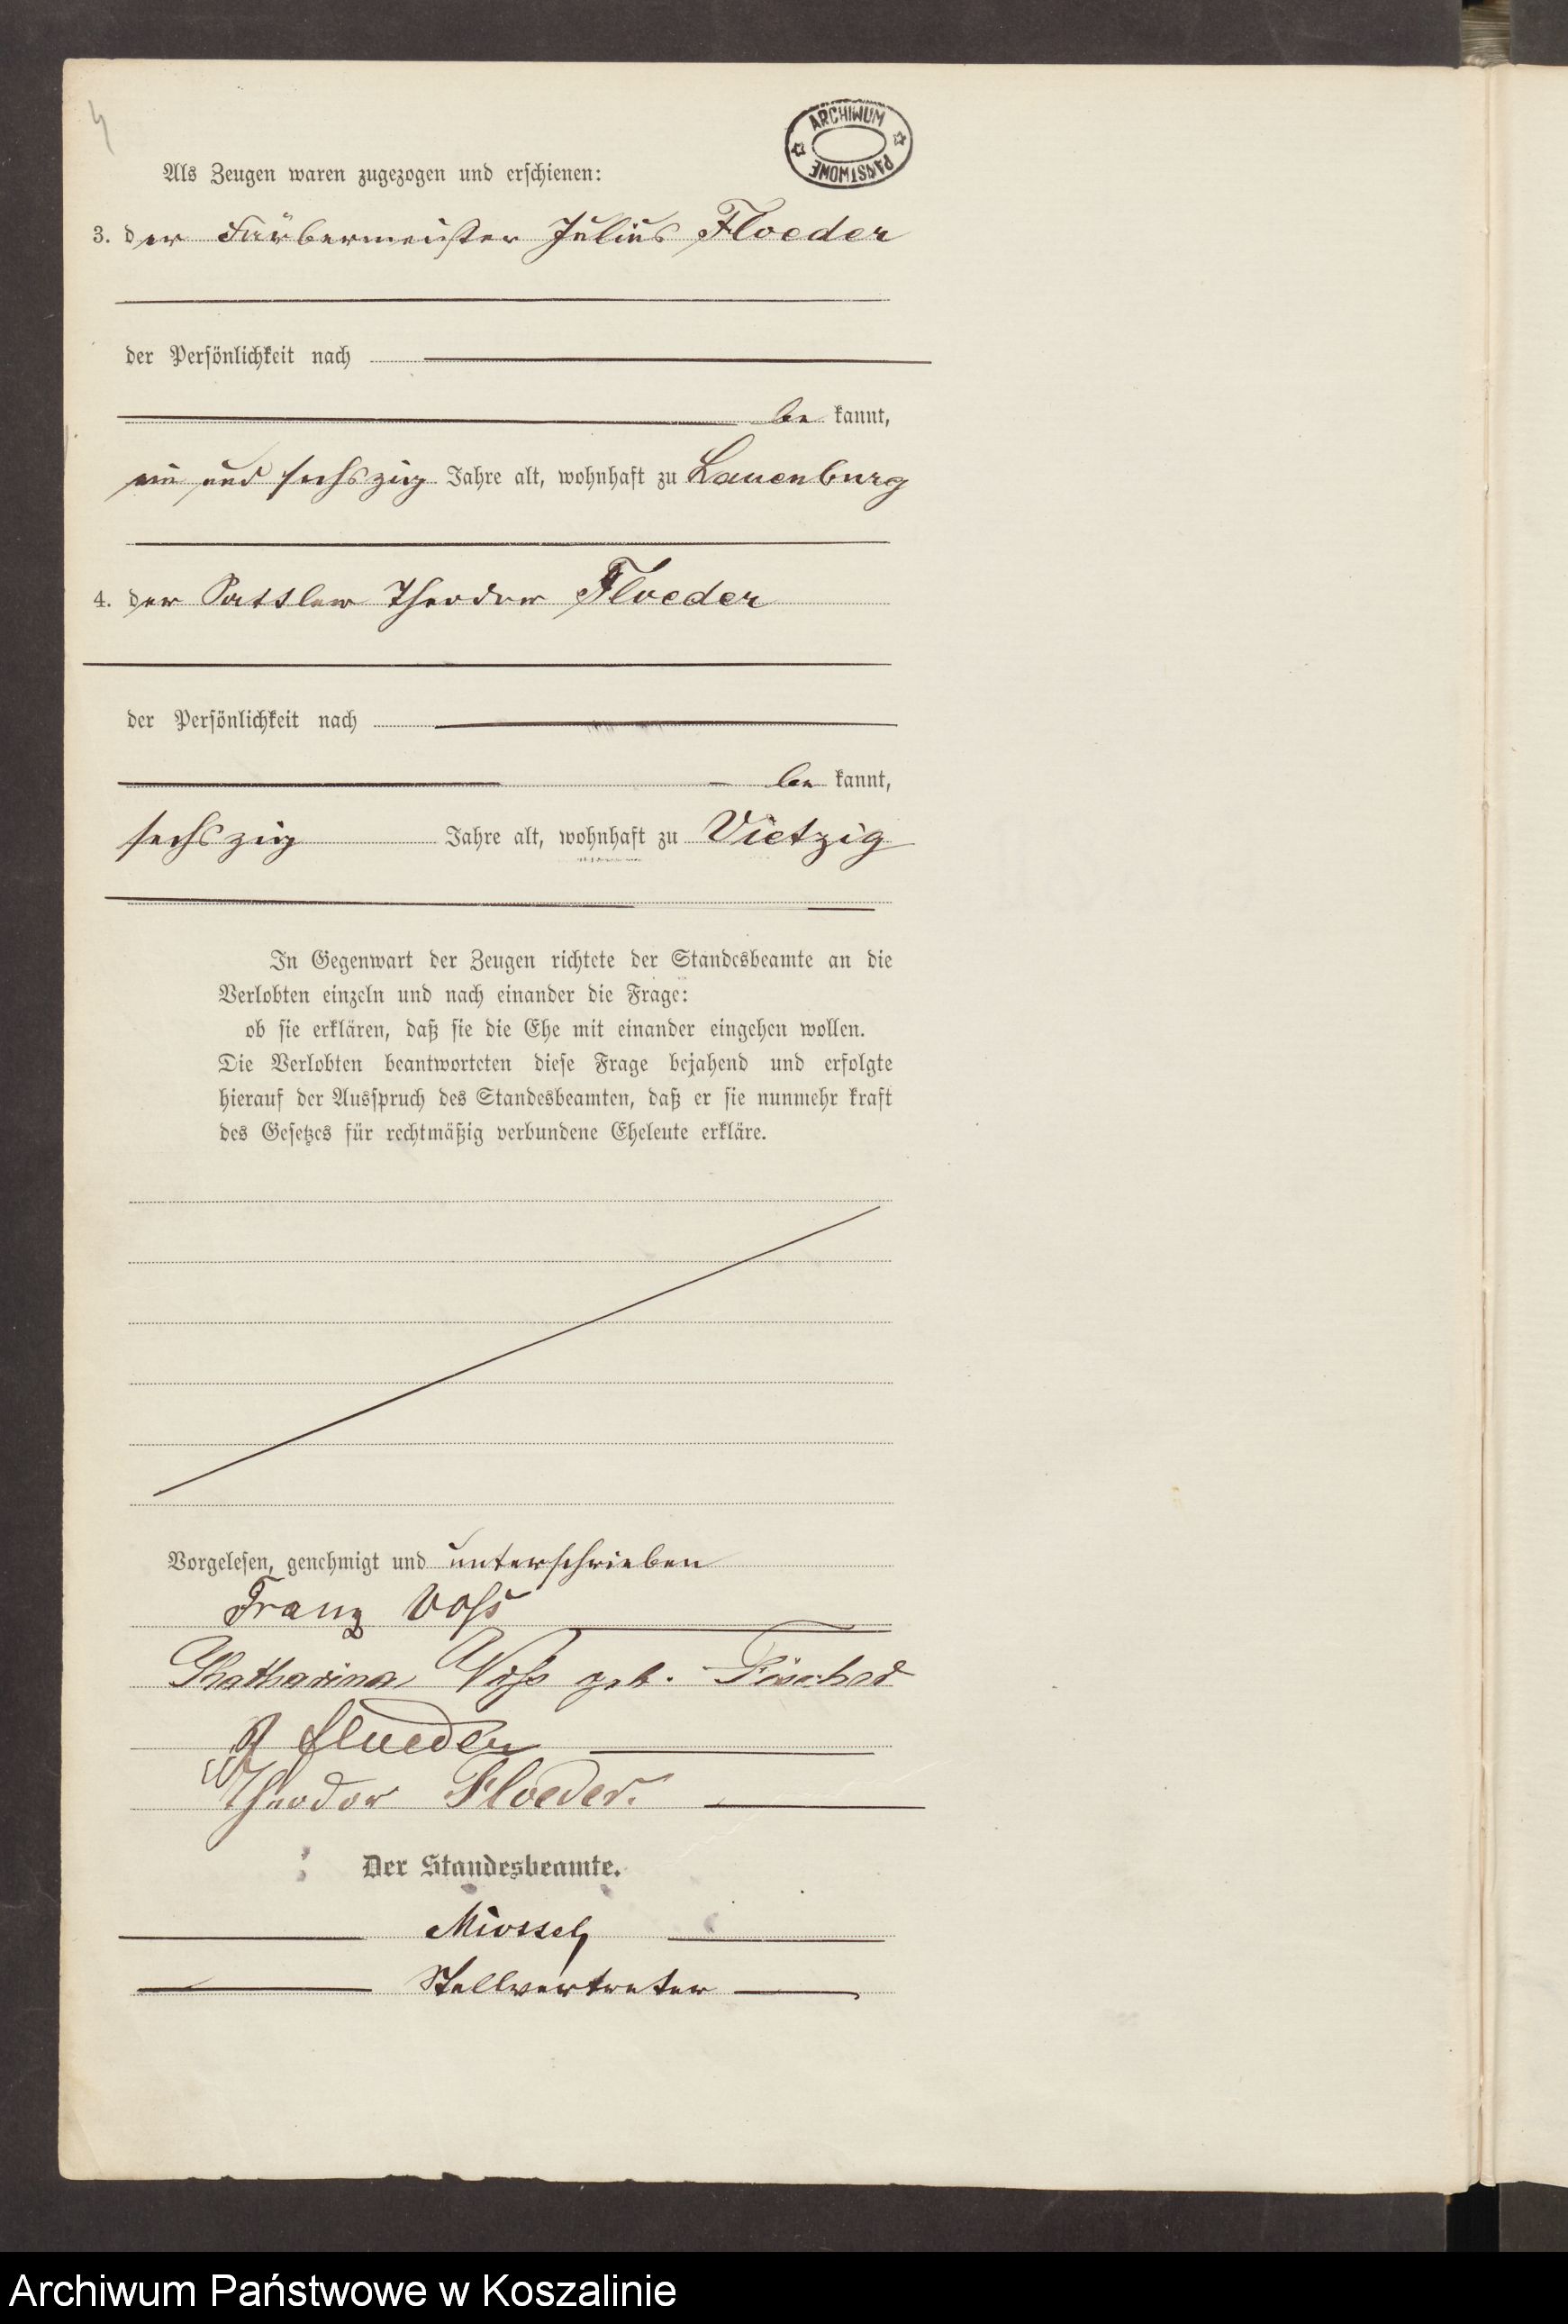 4
ARCHIWUM PAŃSTWOWE
Als Zeugen waren zugezogen und erschienen:
3. der Färbermeister Julius Floeder
der Persönlichkeit nach
be kannt,
ein und sechszig Jahre alt, wohnhaft zu Lauenburg
4. der Sattler Theodor Floeder
der Persönlichkeit nach
be kannt,
sechszig Jahre alt, wohnhaft zu Vietzig
In Gegenwart der Zeugen richtete der Standesbeamte an die
Verlobten einzeln und nach einander die Frage:
ob sie erklären, daß sie die Ehe mit einander eingehen wollen.
Die Verlobten beantworteten diese Frage bejahend und erfolgte
hierauf der Ausspruch des Standesbeamten, daß er sie nunmehr kraft
des Gesetzes für rechtmäßig verbundene Eheleute erkläre.
Vorgelesen, genehmigt und unterschrieben
Franz Voß
Khatharina Voß geb. Fischer
J Floeder
Theodor Floeder.
Der Standesbeamte.
Stellvertreter
Archiwum Państwowe w Koszalinie